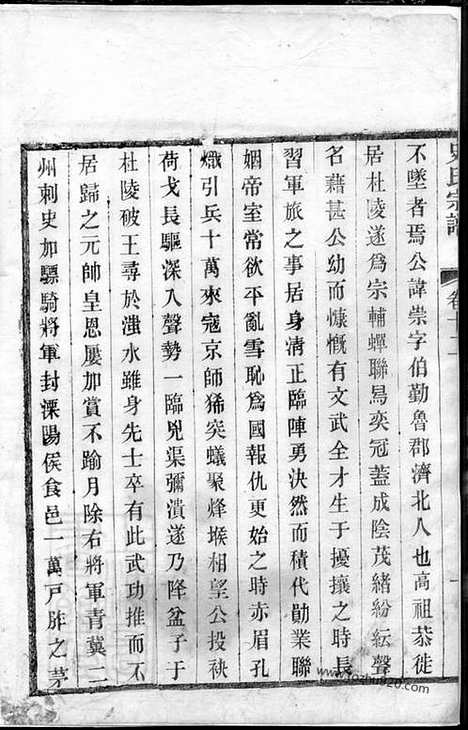 史氏宗譜 卷十二
不墜者焉公諱崇字伯勤魯郡濟北人也高祖恭徙
居杜陵遂爲宗輔蟬聯舄奕冠蓋成陰茂緒紛紜聲
名藉甚公幼而慷慨有文武全才生于擾攘之時長
習軍旅之事居身清正臨陣勇決然而積代勛業聯
姻帝室常欲平亂雪恥爲國報仇更始之時赤眉孔
熾引兵十萬來寇京師狶突蟻聚烽堠相望公投袂
荷戈長驅深入聲勢一臨兇渠彌潰遂乃降盆子于
杜陵破王尋於滍水雖身先士卒有此武功推而不
居歸之元帥皇恩屢加賞不踰月除右將軍青冀二
州刺史加驃騎將軍封溧陽侯食邑一萬戸胙之茅